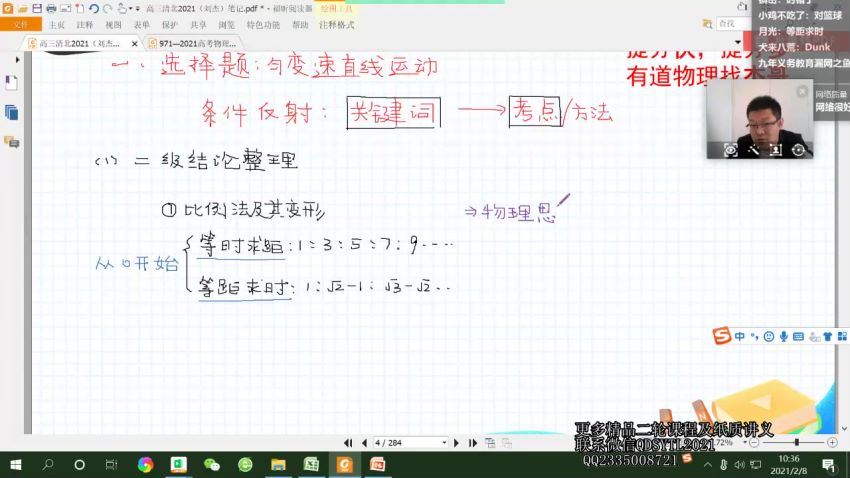 高三清北2021（刘杰）笔记.pdf * - 福昕阅读器
绘图工具
文件 主页 注释 视图 表单 保护 共享 帮助 特色功能 注释格式
高三清北2021（刘杰... × 971—2021高考物理...
小鸡不吃了：对篮球
月光：等距求时
犬来八荒：Dunk
九年义务教育漏网之鱼
网络质量
网络很好
一、选择题：匀变速直线运动
条件反射：关键词 → 考点/方法
(1) 二级结论整理
① 比例法及其变形
⇒物理思
从0开始
等时求距：1：3：5：7：9……
等距求时：1：√2-1：√3-√2…
中
更多精品二轮课程及纸质讲义
联系微信QDSYTL2021
QQ2335008721
4 / 284
10:36
2021/2/8